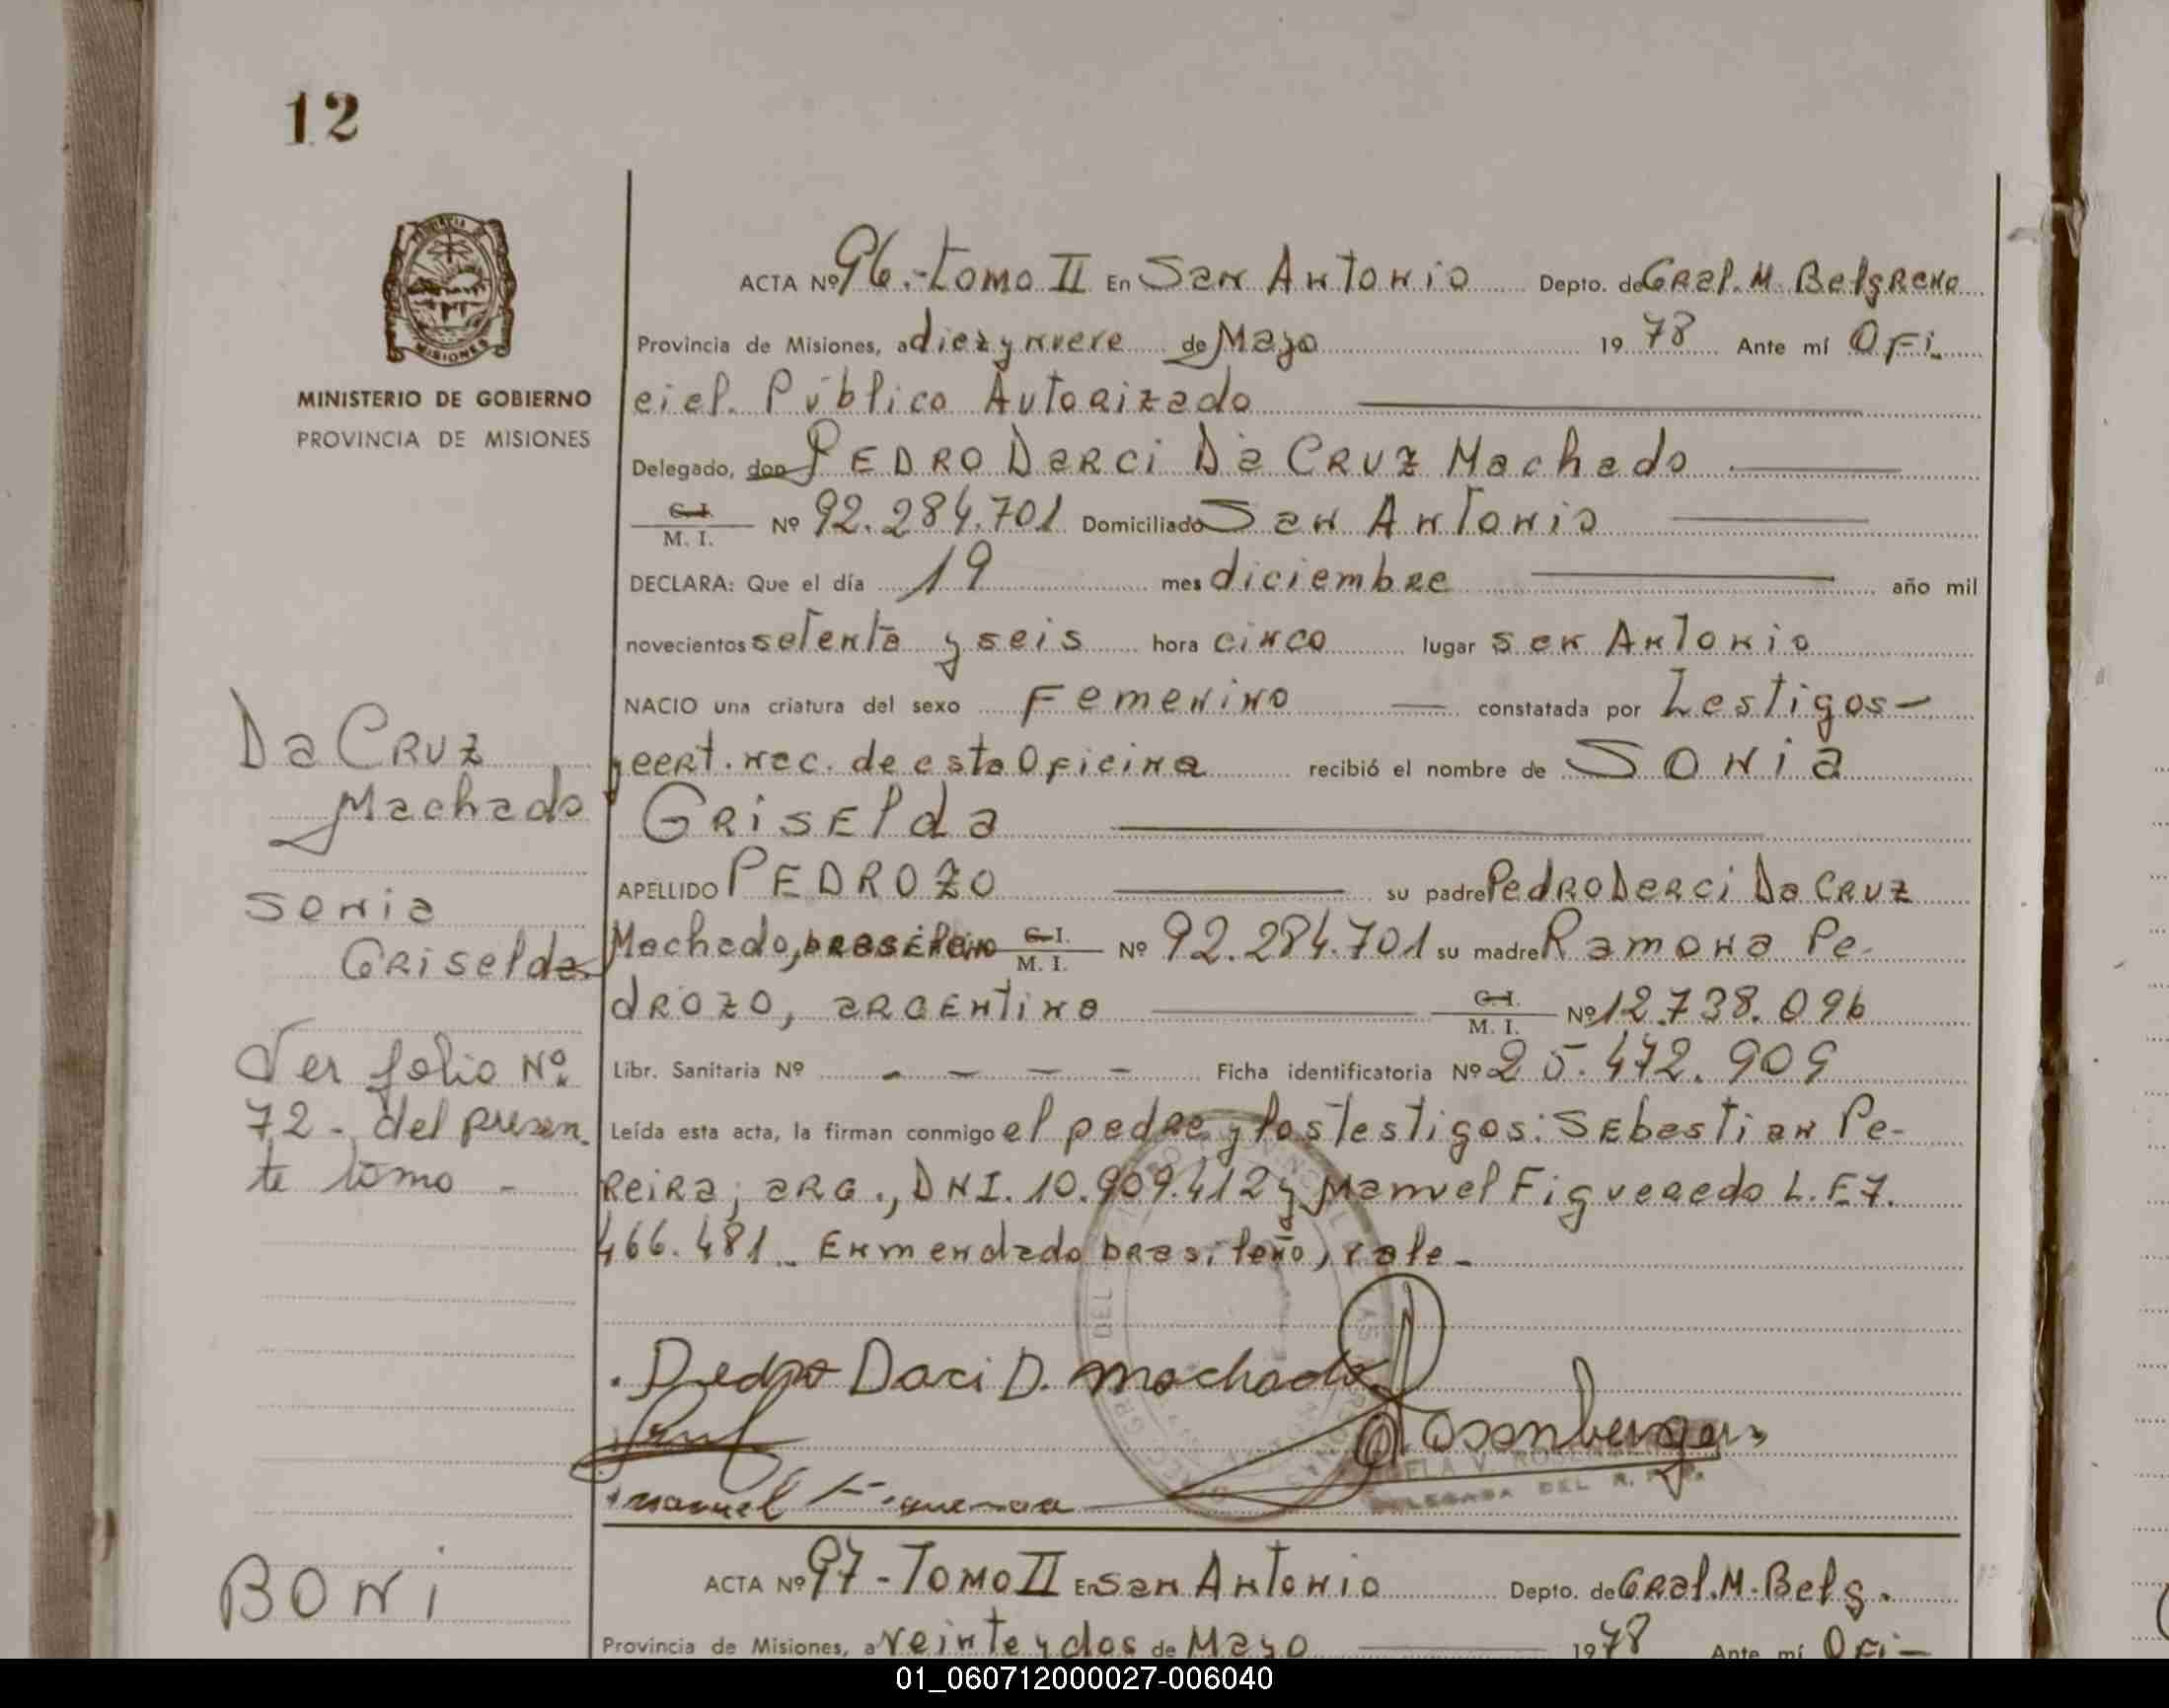 12
MINISTERIO DE GOBIERNO
PROVINCIA DE MISIONES
ACTA Nº 96.-Tomo II En San Antonio Depto. de Gral. M. Belgrano
Provincia de Misiones, a diez y nueve de Mayo 1978 Ante mí Ofi-
cial Público Autorizado
Delegado, don PEDRO Darci Da CRUZ Machado
C. I. M. I. Nº 92.284.701 Domiciliado San Antonio
DECLARA: Que el día 19 mes diciembre año mil
novecientos setenta y seis hora cinco lugar san Antonio
NACIO una criatura del sexo Femenino constatada por Testigos-
y cert. nac. de esta Oficina recibió el nombre de SONia
GRISElda
APELLIDO PEDROZO su padre Pedro Darci Da CRUZ
Machado, brasileño C. I. M. I. Nº 92.284.701 su madre Ramona Pe-
drozo, argentina C. I. M. I. Nº 12.738.096
Libr. Sanitaria Nº - - - - Ficha identificatoria Nº 25.472.909
Leída esta acta, la firman conmigo el padre y los testigos: Sebastian Pe-
reira, arg., DNI. 10.909.412 y Manuel Figueredo L.E 7.
466.481.. Enmendado brasileño, vale-
Da CRUZ
Machado
Sonia
Griselda
Ver folio Nº
72 - del presen-
te tomo -
Pedro Darci D. machado
Rosenberger
manuel Figuereda
DELEGADA DEL R.
BONi
ACTA Nº 97 - Tomo II En san Antonio Depto. de Gral. M. Belg.
Provincia de Misiones, a veinte y dos de Mayo 1978 Ante mí Ofi-
01_060712000027-006040